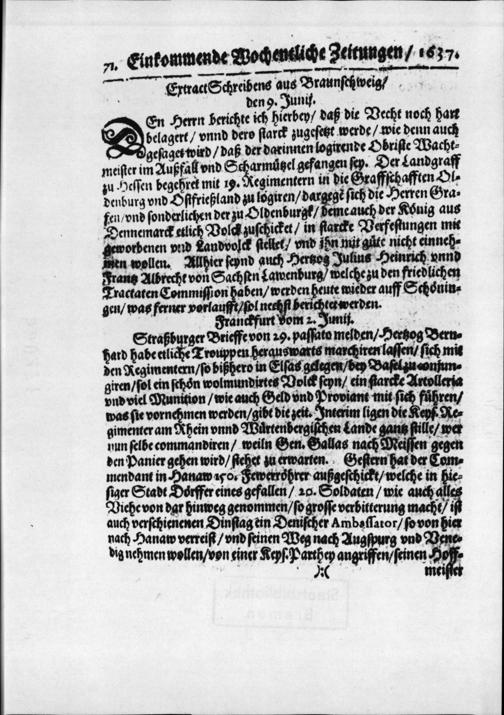 71. Einkommende Wochentliche Zeitungen / 1637.
Extract Schreibens aus Braunschweig /
den 9. Junij.
DEn Herrn berichte ich hierbey / daß die Vecht noch hart
belagert / vnnd dero starck zugesetzt werde / wie denn auch
gesaget wird / daß der darinnen logirende Obriste Wacht-
meister im Außfall vnd Scharmützel gefangen sey. Der Landgraff
zu Hessen begehret mit 19. Regimentern in die Graffschafften Ol-
denburg vnd Ostfrießland zu logiren / dargegē sich die Herren Gra-
fen / vnd sonderlichen der zu Oldenburgk / deme auch der König aus
Dennemarck etlich Volck zuschicket / in starcke Verfestungen mit
geworbenen vnd Landvolck stellet / vnd ihn mit güte nicht einneh-
men wollen. Allhier seynd auch Hertzog Julius Heinrich vnnd
Frantz Albrecht von Sachsen Lawenburg / welche zu den friedlichen
Tractaten Commission haben / werden heute wieder auff Schönin-
gen / was ferner vorlaufft / sol nechst berichtet werden.
Franckfurt vom 2. Junij.
Straßburger Brieffe von 29. passato melden / Hertzog Bern-
hard habe etliche Trouppen herauswarts marchiren lassen / sich mit
den Regimentern / so bißhero in Elsas gelegen / bey Basel zu conjun-
giren / sol ein schön wolmundirtes Volck seyn / ein starcke Artolleria
vnd viel Munition / wie auch Geld vnd Proviant mit sich führen /
was sie vornehmen werden / gibt die zeit. Interim ligen die Keys. Re-
gimenter am Rhein vnnd Würtenbergischen Lande gantz stille / wer
nun selbe commandiren / weiln Gen. Gallas nach Meissen gegen
den Panier gehen wird / stehet zu erwarten. Gestern hat der Com-
mendant in Hanaw 150. Fewerröhrer außgeschickt / welche in hie-
siger Stadt Dörffer eines gefallen / 20. Soldaten / wie auch alles
Viehe von dar hinweg genommen / so grosse verbitterung macht / ist
auch verschienenen Dinstag ein Denischer Ambassator / so von hier
nach Hanaw verreist / vnd seinen Weg nach Augspurg vnd Vene-
dig nehmen wollen / von einer Keys. Parthey angriffen / seinen Hoff-
):( meister
Staatsbibliothek
Bremen